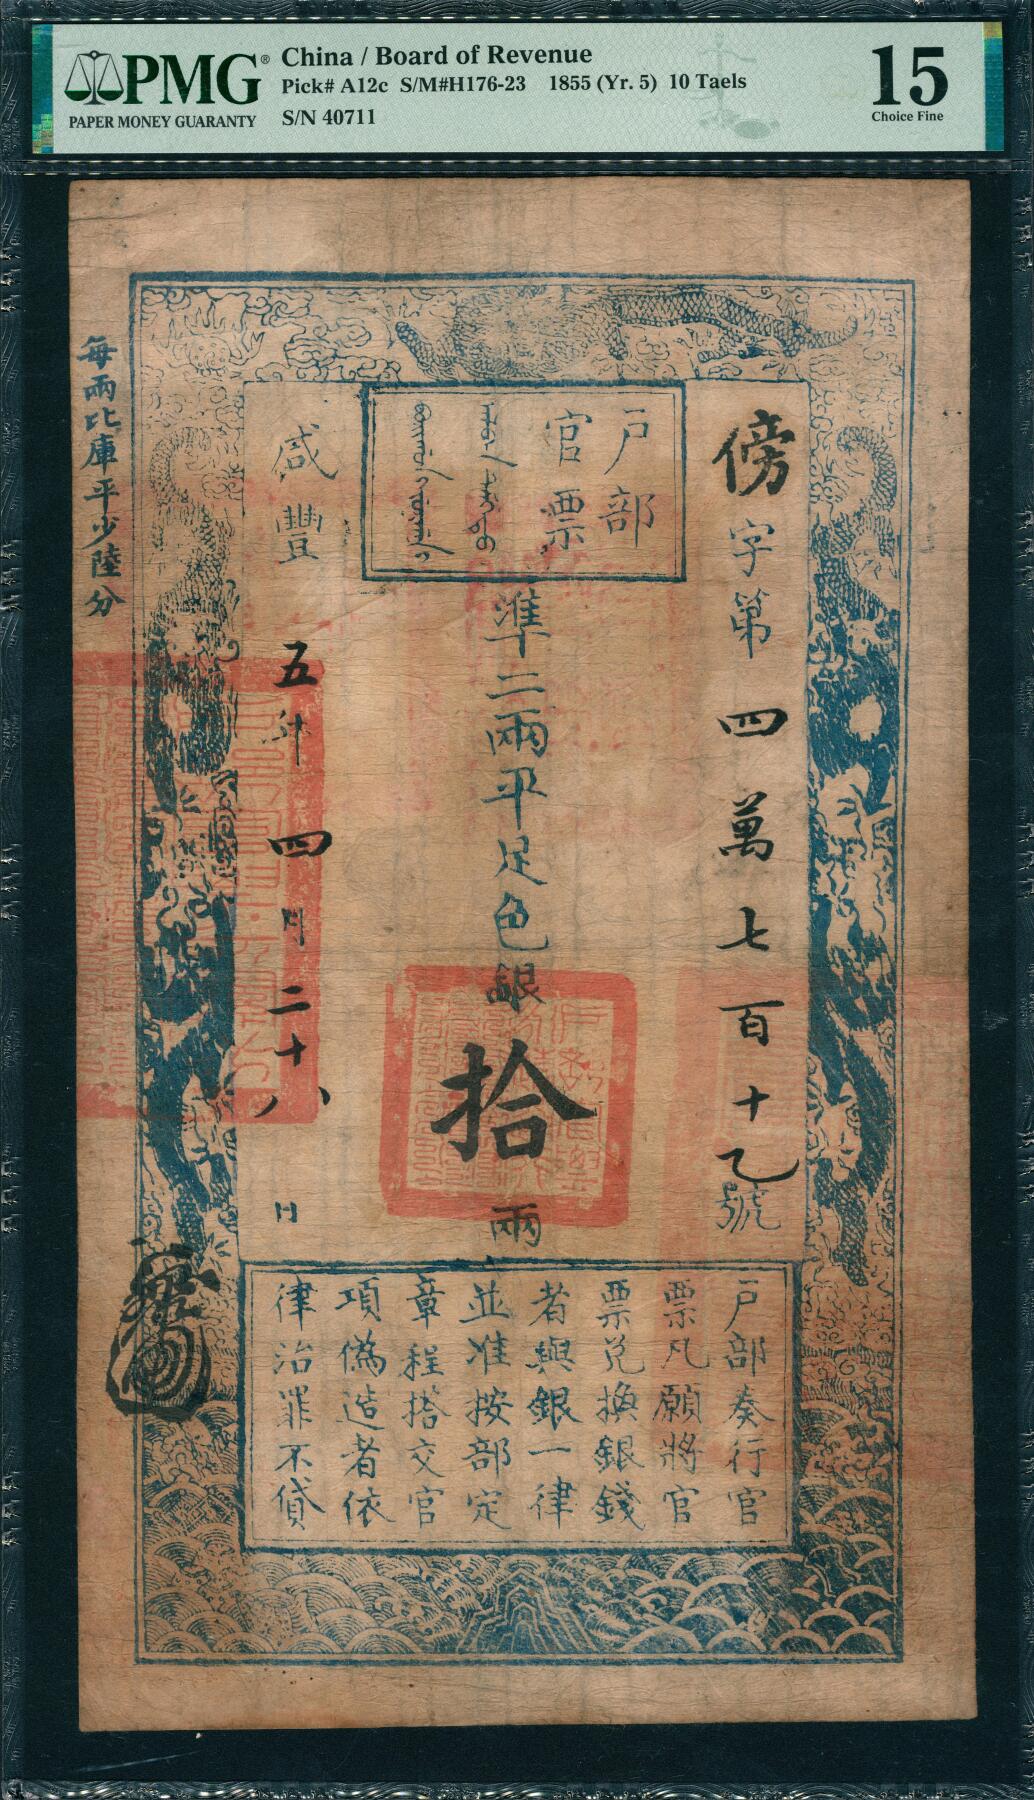 PMG®
PAPER MONEY GUARANTY
China / Board of Revenue
Pick# A12c S/M#H176-23 1855 (Yr. 5) 10 Taels
S/N 40711
15
Choice Fine
戶部
官票
傍字第四萬七百十乙號
準二兩平足色銀拾兩
咸豐五年四月二十八日
每兩比庫平少陸分
戶部奏行官
票凡願將官
票兑換銀錢
者與銀一律
並准按部定
章程搭交官
項偽造者依
律治罪不貸